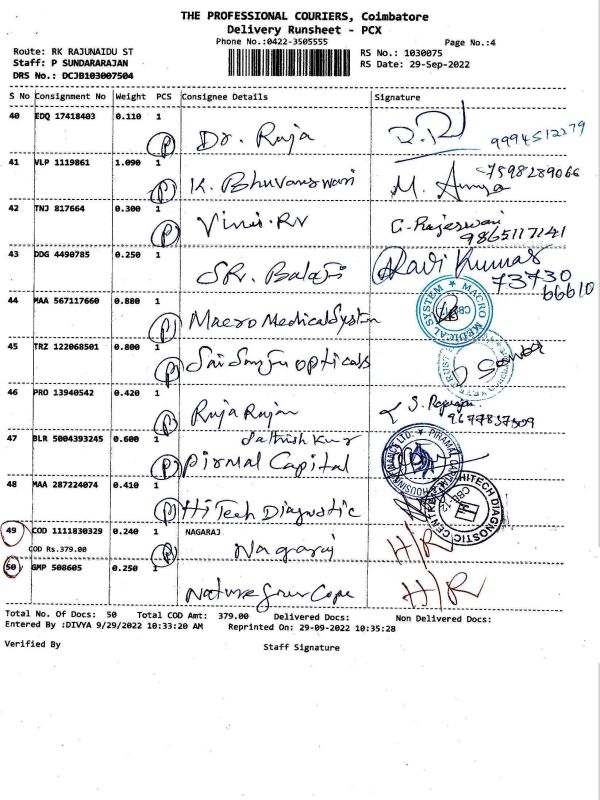 THE PROFESSIONAL COURIERS, Coimbatore
Delivery Runsheet - PCX
Phone No.:0422-3505555
Page No.:4
Route: RK RAJUNAIDU ST
RS No.: 1030075
Staff: P SUNDARARAJAN
RS Date: 29-Sep-2022
DRS No.: DCJB103007504
S No Consignment No Weight PCS Consignee Details Signature
40 EDQ 17418403 0.110 1
P Dr. Raja 9994512279
41 VLP 1119861 1.090 1 7598289066
P K. Bhuvaneswari M.
42 TNJ 817664 0.300 1 G. Rajeswari
P 9865117141
43 DDG 4490785 0.250 1 Ravi Kumar
SR. Balaji 73730
66610
44 MAA 567117660 0.880 1
P Macro Medical System MACRO MEDICAL SYSTEM
45 TRZ 122068501 0.800 1
P opticals
46 PRO 13940542 0.420 1
P Raja Rajan 9677837509
47 BLR 5004393245 0.600 1
P Pirmal Capital
48 MAA 287224074 0.410 1
P HiTech Diagnostic HITECH DIAGNOSTIC CENTRE
49 COD 1111830329 0.240 1 NAGARAJ
COD Rs.379.00 P Nagaraj H/R
50 GMP 508605 0.250 1
H/R
Total No. Of Docs: 50 Total COD Amt: 379.00 Delivered Docs: Non Delivered Docs:
Entered By :DIVYA 9/29/2022 10:33:20 AM Reprinted On: 29-09-2022 10:35:28
Verified By Staff Signature